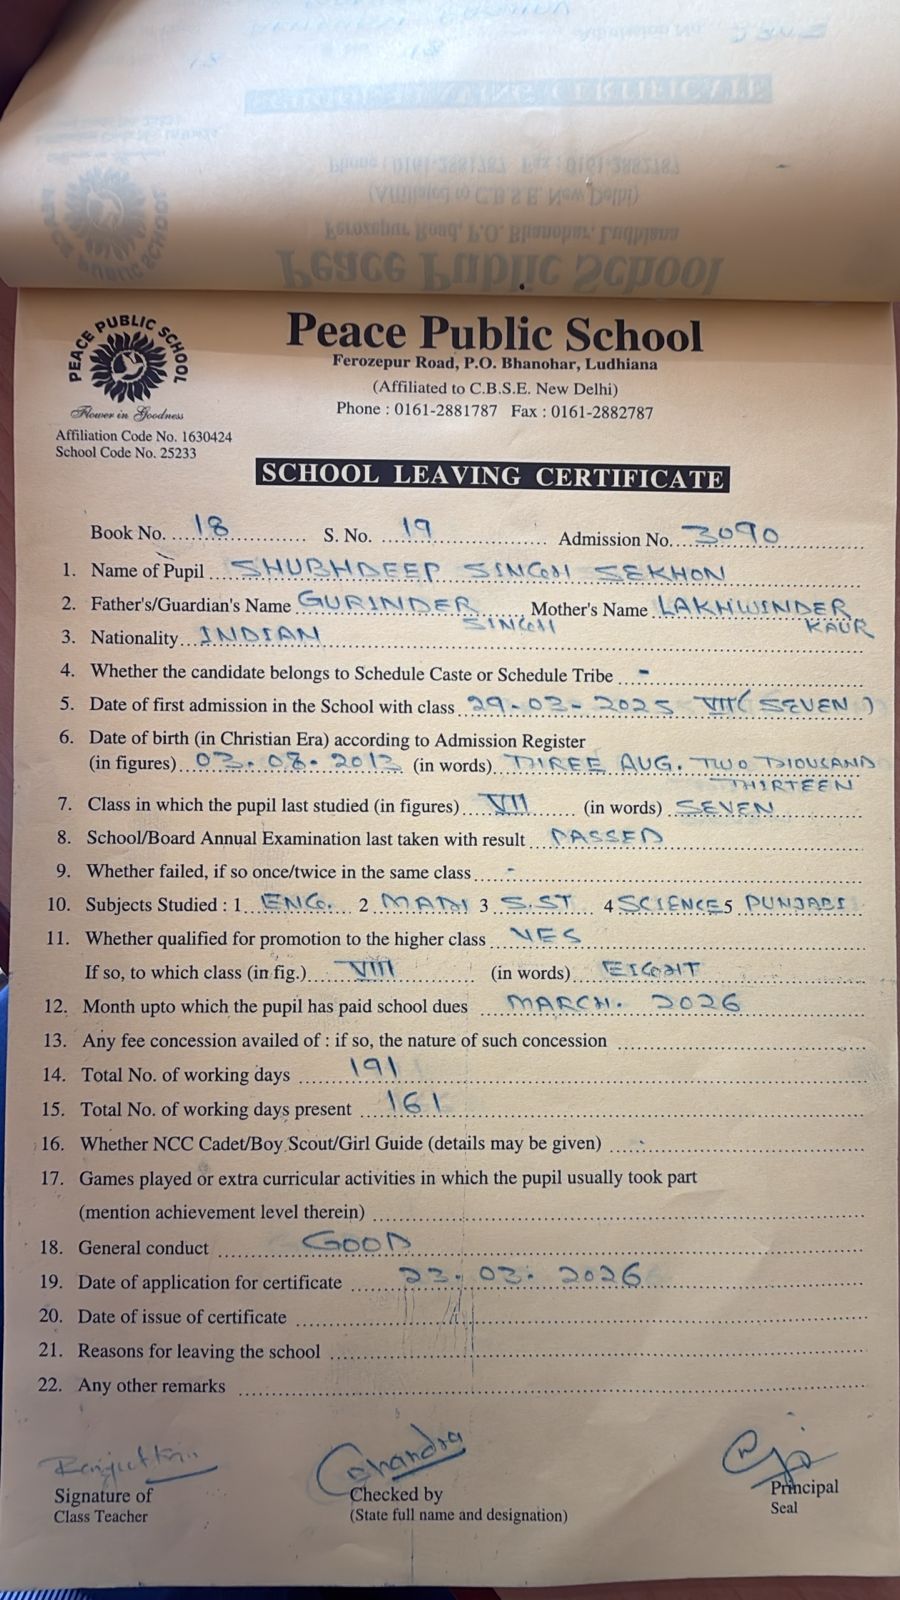 Peace Public School
Ferozepur Road, P.O. Bhanohar, Ludhiana
(Affiliated to C.B.S.E. New Delhi)
Phone : 0161-2881787 Fax : 0161-2882787
PEACE PUBLIC SCHOOL
Flower in Goodness
Affiliation Code No. 1630424
School Code No. 25233
SCHOOL LEAVING CERTIFICATE
Book No. 18 S. No. 19 Admission No. 3090
1. Name of Pupil SHUBHDEEP SINGH SEKHON
2. Father's/Guardian's Name GURINDER SINGH Mother's Name LAKHWINDER KAUR
3. Nationality INDIAN
4. Whether the candidate belongs to Schedule Caste or Schedule Tribe -
5. Date of first admission in the School with class 29-03-2025 VII (SEVEN)
6. Date of birth (in Christian Era) according to Admission Register
(in figures) 03.08.2013 (in words) THREE AUG. TWO THOUSAND THIRTEEN
7. Class in which the pupil last studied (in figures) VII (in words) SEVEN
8. School/Board Annual Examination last taken with result PASSED
9. Whether failed, if so once/twice in the same class -
10. Subjects Studied : 1 ENG. 2 MATH 3 S.ST 4 SCIENCE 5 PUNJABI
11. Whether qualified for promotion to the higher class YES
If so, to which class (in fig.) VIII (in words) EIGHT
12. Month upto which the pupil has paid school dues MARCH. 2026
13. Any fee concession availed of : if so, the nature of such concession
14. Total No. of working days 191
15. Total No. of working days present 161
16. Whether NCC Cadet/Boy Scout/Girl Guide (details may be given)
17. Games played or extra curricular activities in which the pupil usually took part
(mention achievement level therein)
18. General conduct GOOD
19. Date of application for certificate 23.03.2026
20. Date of issue of certificate
21. Reasons for leaving the school
22. Any other remarks
Chandra
Signature of Class Teacher
Checked by
(State full name and designation)
Principal
Seal